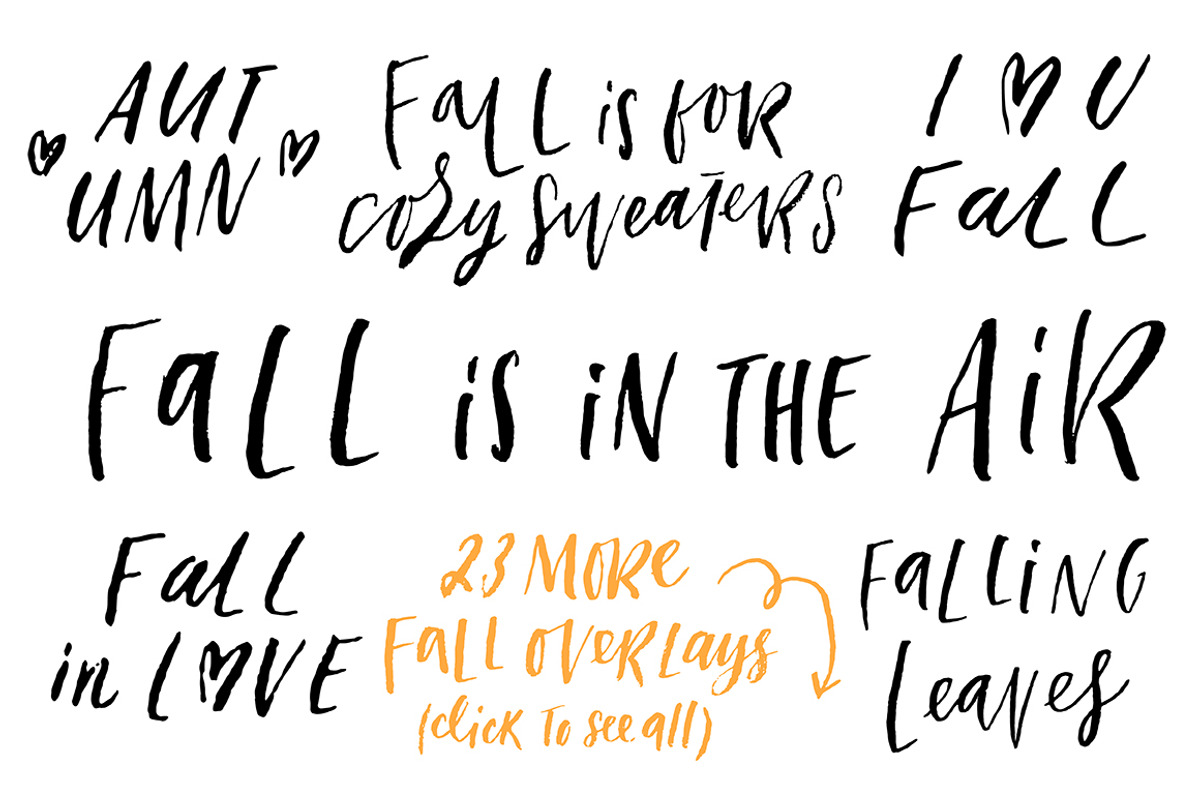 AUT
UMN
Fall is for
cozy sweaters
I ♥ U
Fall
Fall is in the Air
Fall
in L♥VE
23 More
Fall overlays
(click to see all)
Falling
Leaves